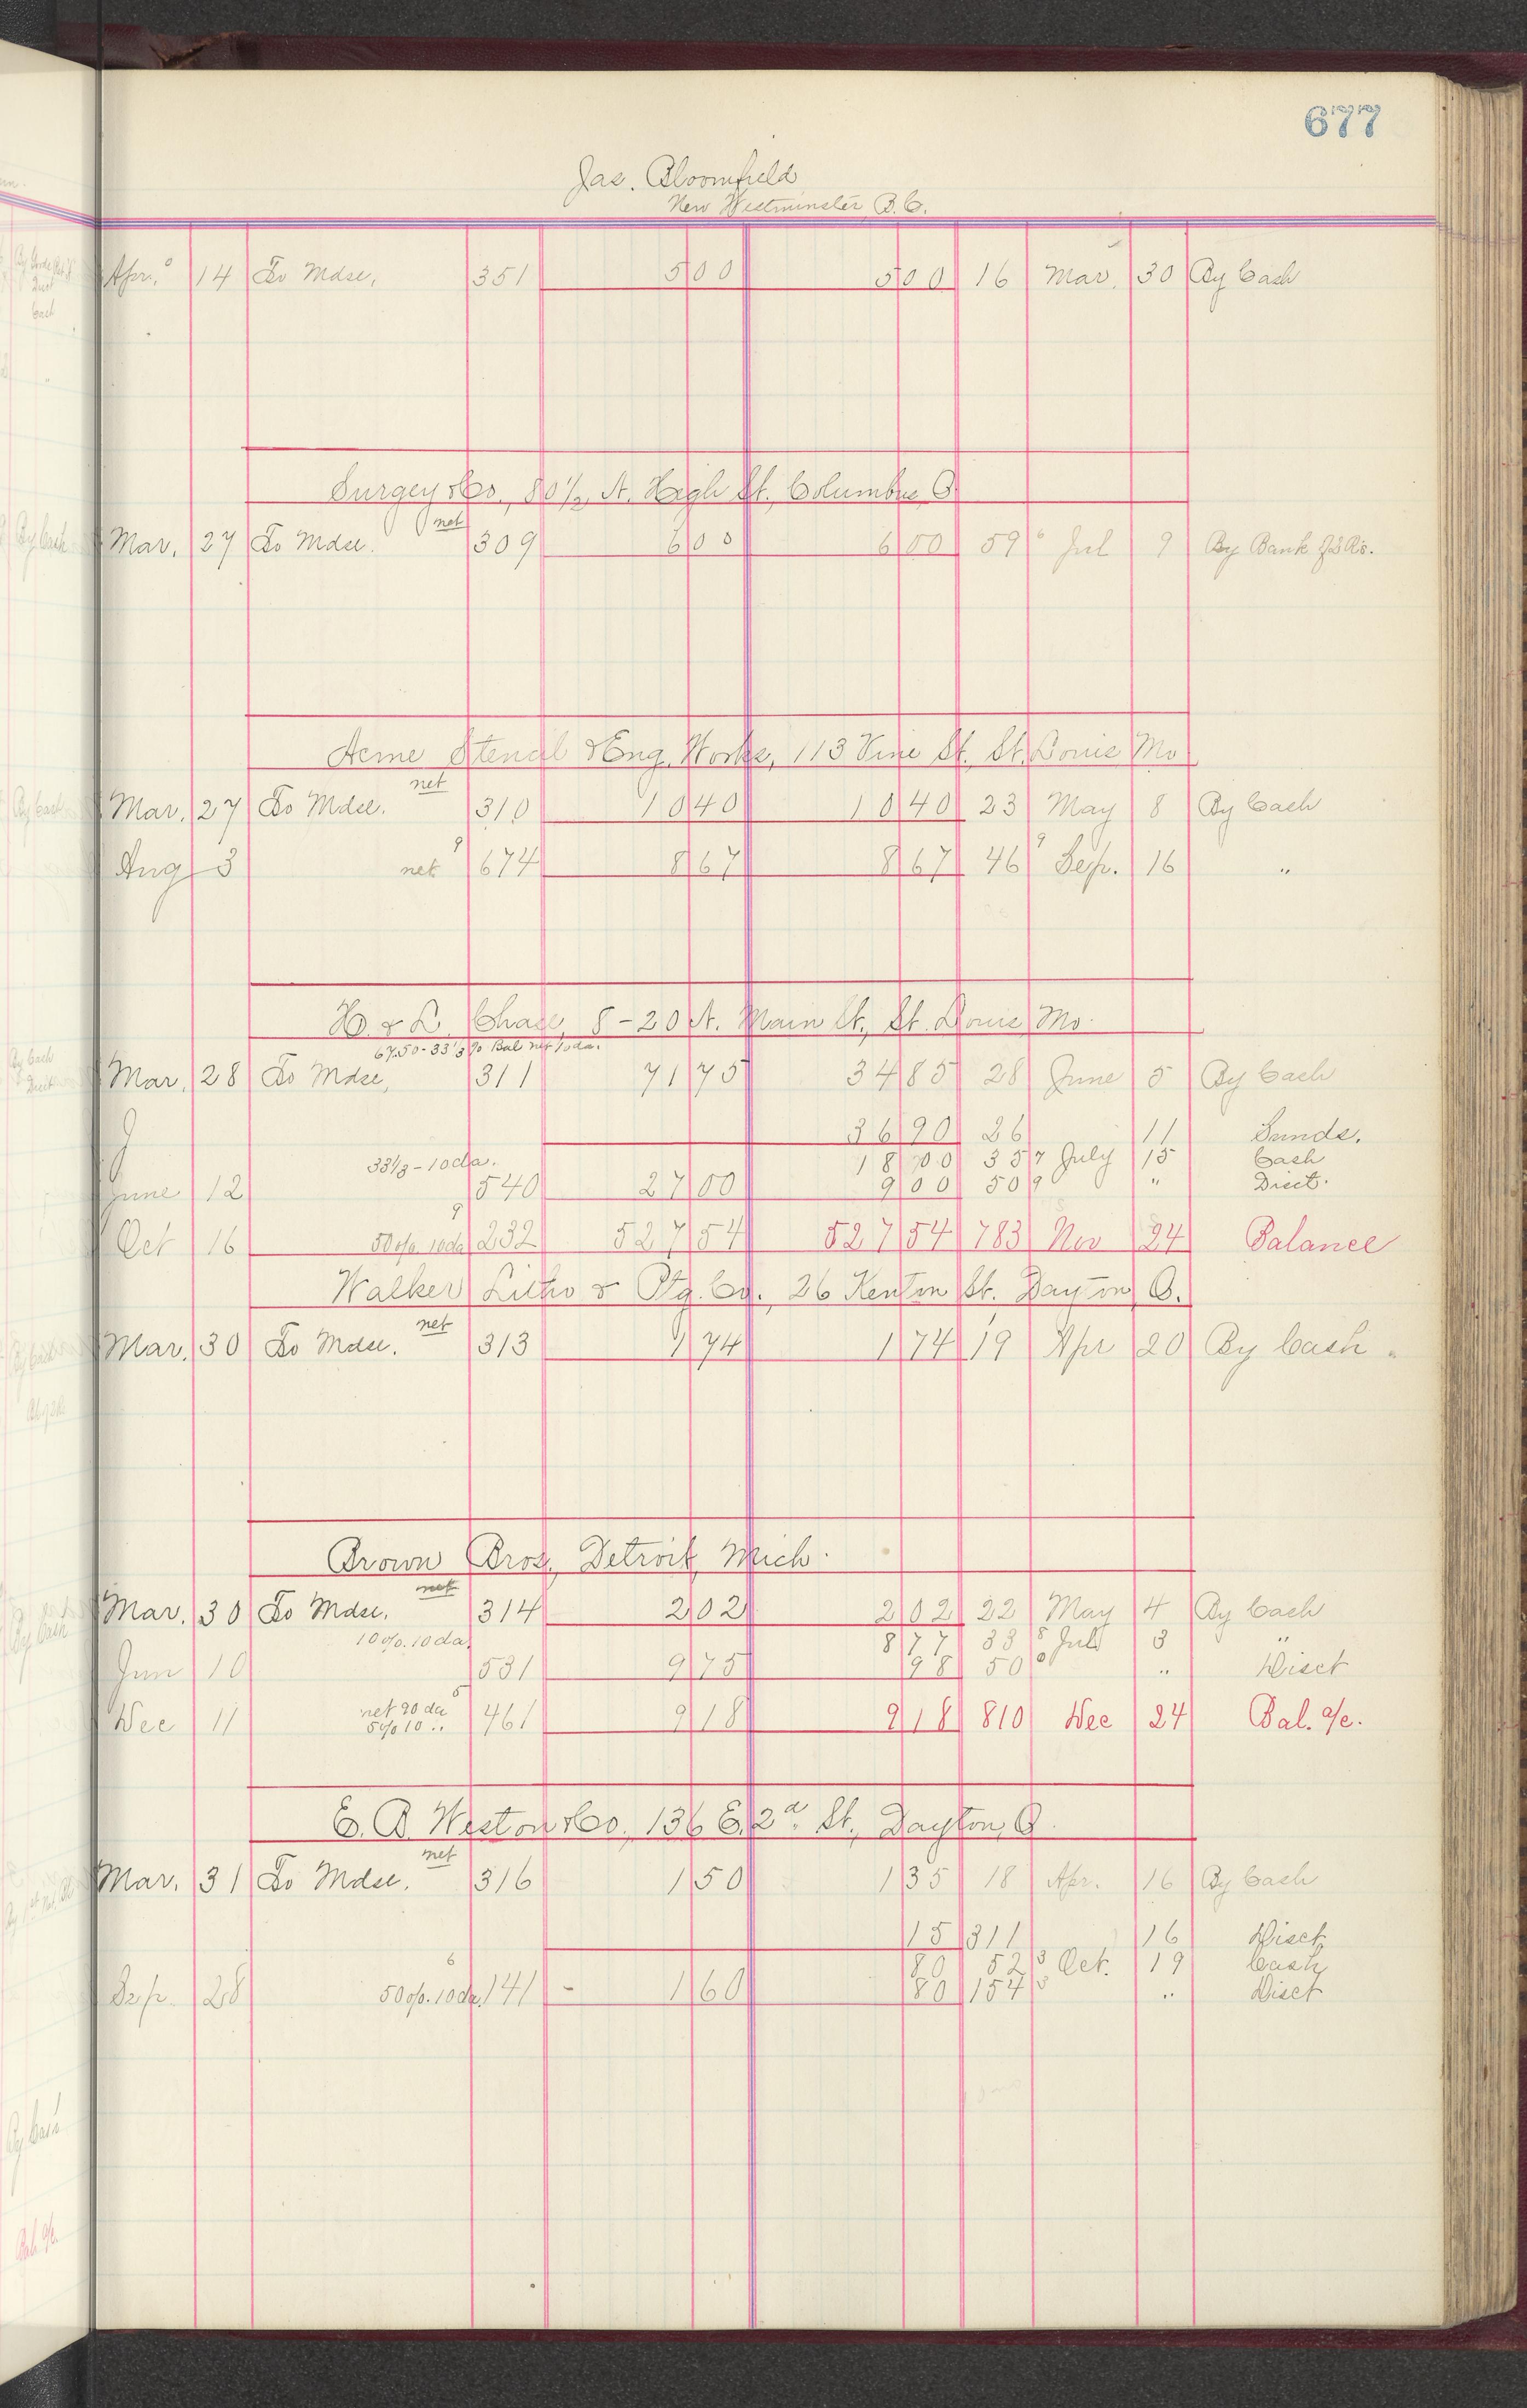 677
Jas. Bloomfield
New Westminster B.C.
Apr. 14 To Mdse, 351 5 00 5 00 16 Mar. 30 By Cash
Surgey & Co., 80 1/2 N. High St. Columbus, O.
net
Mar. 27 To Mdse. 309 6 00 6 00 59 6 Jul 9 By Bank
Acme Stencil & Eng. Works, 113 Vine St. St. Louis Mo
net
Mar. 27 To Mdse. 310 10 40 10 40 23 May 8 By Cash
Aug 3 net 9 674 8 67 8 67 46 9 Sep. 16 "
H. & L. Chase, 8-20 N. Main St., St. Louis Mo.
67.50 - 33 1/3 % Bal net 10 da.
Mar. 28 To Mdse, 311 71 75 34 85 28 June 5 By Cash
36 90 26 11 Sunds.
33 1/3 - 10 da. 18 00 35 7 July 15 Cash
June 12 540 27 00 9 00 50 9 " Disct.
Oct 16 50%. 10 da 9 232 527 54 527 54 783 Nov 24 Balance
Walker Litho & Ptg. Co. 26 Kenton St. Dayton, O.
net
Mar. 30 To Mdse. 313 1 74 1 74 19 Apr 20 By Cash
Brown Bros, Detroit, Mich.
net
Mar. 30 To Mdse. 314 2 02 2 02 22 May 4 By Cash
10%. 10 da. 8 77 33 8 Jul 3 "
Jun 10 531 9 75 98 50 " Disct
Dec 11 net 90 da 5% 10 .. 5 461 9 18 9 18 810 Dec 24 Bal. a/c.
E. B. Weston & Co. 136 E. 2d. St., Dayton, O.
net
Mar. 31 To Mdse. 316 1 50 1 35 18 Apr. 16 By Cash
15 311 16 Disct
80 52 3 Oct. 19 Cash
Sep. 28 50%. 10 da. 6 141 - 1 60 80 154 3 " Disct
By Cash
Bal. a/c.